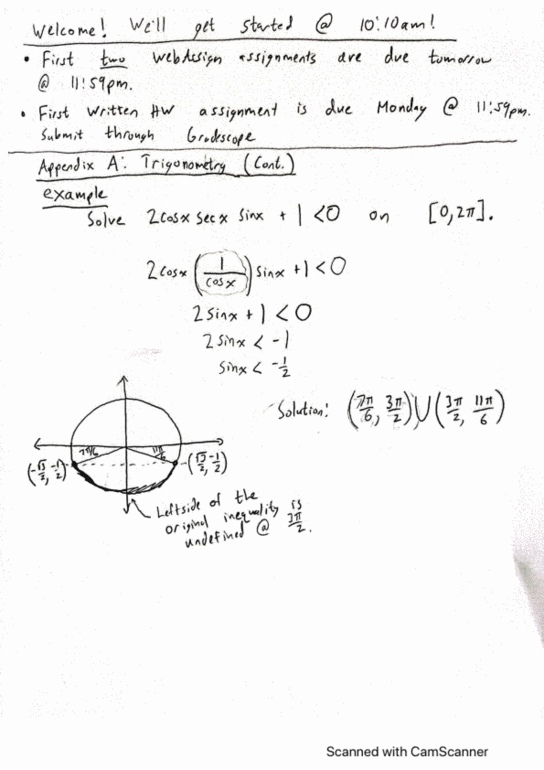 Welcome! We'll get started @ 10:10am!
• First two WebAssign assignments are due tomorrow
@ 11:59pm.
• First Written HW assignment is due Monday @ 11:59pm.
Submit through Gradescope
Appendix A: Trigonometry (Cont.)
example
Solve 2cosx secx sinx + 1 <0 on [0,2π].
2cosx (1/cosx) sinx +1 <0
2sinx + 1 <0
2sinx < -1
sinx < -1/2
Solution: (7π/6, 3π/2) ∪ (3π/2, 11π/6)
7π/6 11π/6
(-√3/2, -1/2) (√3/2, -1/2)
Leftside of the
original inequality is
undefined @ 3π/2.
Scanned with CamScanner